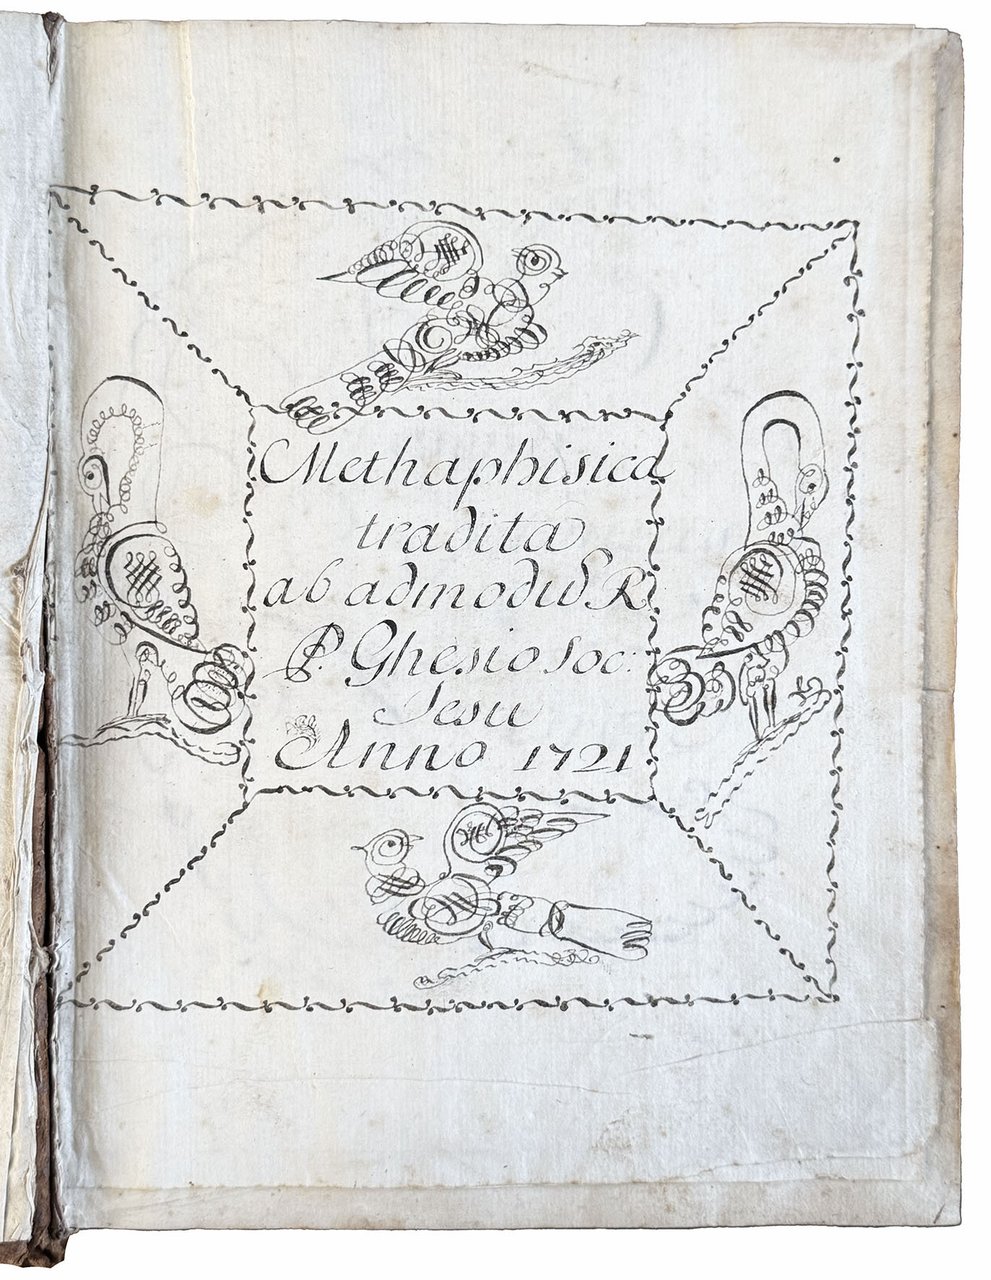 Methaphisica
tradita
ab admodũ R
P. Ghesio Soc:
Jesu
Anno 1721